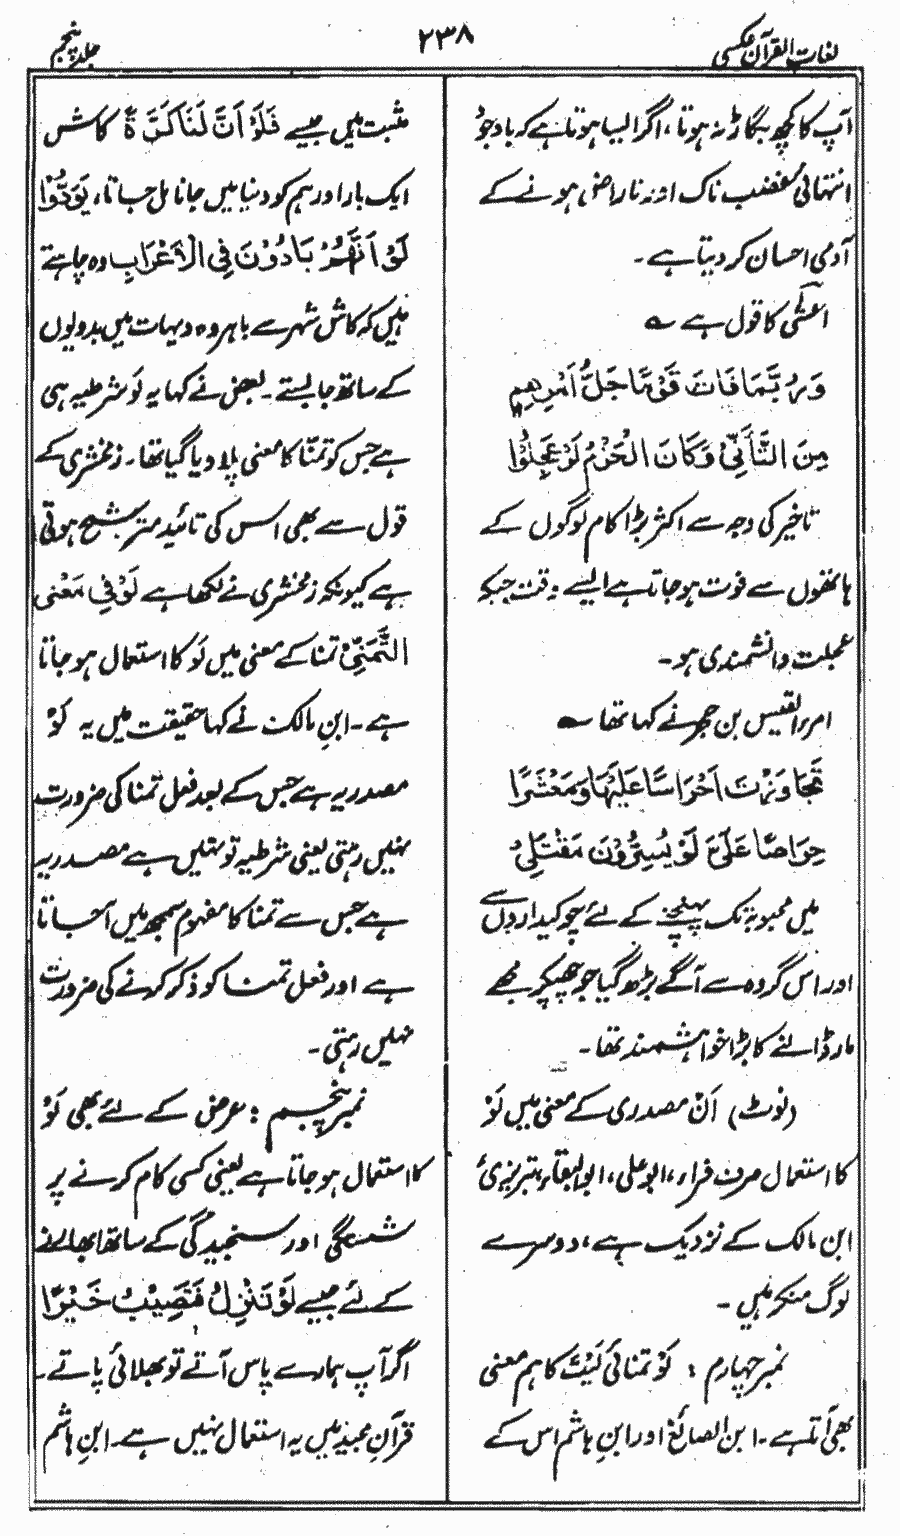 لغات القرآن عکسی
۲۳۸
جلد پنجم
آپ کا کچھ بگاڑ نہ ہوتا، اگر ایسا ہوتا ہے کہ باوجود
انتہائی غضب ناک اور ناراض ہونے کے
آدمی احسان کر دیتا ہے۔
اعشٰی کا قول ہے ؎
وَرُبَّمَا فَاتَ قَوْمًا جَلُّ اَمْرِهِم
مِنَ التَّأَنِّیْ وَکَانَ الْحَزْمُ لَوْ عَجِلُوْا
تاخیر کی وجہ سے اکثر بڑا کام لوگوں کے
ہاتھوں سے فوت ہو جاتا ہے ایسے وقت جبکہ
عجلت دانشمندی ہو۔
امرء القیس بن حجر نے کہا تھا ؎
تَجَاوَزْتُ اَحْرَاسًا عَلَيْهَا وَمَعْشَرًا
حِرَاصًا عَلَيَّ لَوْ يُسِرُّوْنَ مَقْتَلِيْ
میں محبوبہ تک پہنچنے کے لئے چوکیداروں سے
اور اس گروہ سے آگے بڑھ گیا جو چھپکر مجھے
مار ڈالنے کا بڑا خواہشمند تھا۔
(نوٹ) اَنْ مصدری کے معنی میں لَوْ
کا استعمال صرف فراء، ابو علی، ابو البقاء، تبریزی
ابن مالک کے نزدیک ہے، دوسرے
لوگ منکر ہیں۔
نمبر چہارم : لَوْ تمنائی لَیْتَ کا ہم معنی
بھی آتا ہے۔ ابن الصائغ اور ابنِ ہاشم اس کے
مثبت ہیں جیسے فَلَوْ اَنَّ لَنَا کَرَّةً کاش
ایک بار اور ہم کو دنیا میں جانا مل جاتا، یَوَدُّوْا
لَوْ اَنَّهُمْ بَادُوْنَ فِي الْاَعْرَابِ وہ چاہتے
ہیں کہ کاش شہر سے باہر وہ دیہات میں بدویوں
کے ساتھ جا بستے۔ بعض نے کہا یہ لَو شرطیہ ہی
ہے جس کو تمنّا کا معنی پلا دیا گیا تھا۔ زمخشری کے
قول سے بھی اس کی تائید مترشح ہوتی
ہے کیونکہ زمخشری نے لکھا ہے لَوْ فِي مَعْنى
التَّمَنِّيْ تمنا کے معنی میں لَو کا استعمال ہو جاتا
ہے۔ ابنِ مالک نے کہا حقیقت میں یہ لَوْ
مصدریہ ہے جس کے بعد فعل تمنا کی ضرورت
نہیں رہتی یعنی شرطیہ تو نہیں ہے مصدریہ
ہے جس سے تمنا کا مفہوم سمجھ میں آ جاتا
ہے اور فعل تمنا کو ذکر کرنے کی ضرورت
نہیں رہتی۔
نمبر پنجم : عرض کے لئے بھی لَوْ
کا استعمال ہو جاتا ہے یعنی کسی کام کرنے پر
شستگی اور سنجیدگی کے ساتھ ابھارنے
کے لئے جیسے لَوْ تَنْزِلُ فَتُصِيْبُ خَيْرًا
اگر آپ ہمارے پاس آتے تو بھلائی پاتے۔
قرآنِ مجید میں یہ استعمال نہیں ہے۔ ابنِ ہاشم